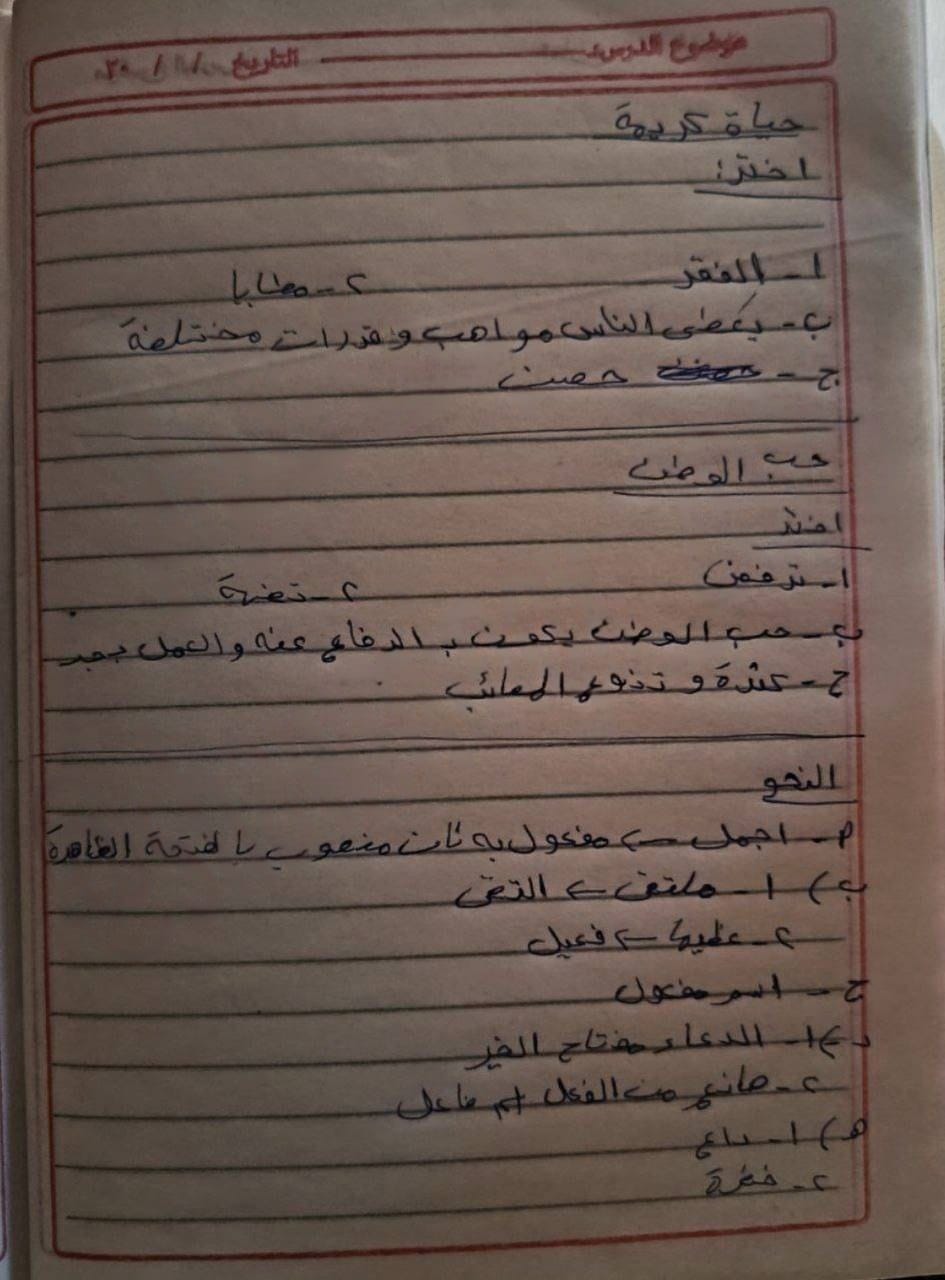 موضوع الدرس: التاريخ / / ٢٠
حياة كريمة
اختر:
ا - الفقر ٢ - مطايا
ب - يعطى الناس مواهب وقدرات مختلفة
ج - حصن
حب الوطن
اختر
ا - ترفض ٢ - تضنية
ب - حب الوطن يكون بـ الدفاع عنه والعمل بجد
ج - كثرة و تنوع المصائب
النحو
م - اجمل ← مفعول به ثان منصوب بالفتحة الظاهرة
ب ) ا - ملتقى ← التقى
٢ - عظيما ← فعيل
ج - اسم مفعول
د ) ا - الدعاء مفتاح الخير
٢ - صانع من الفعل اسم فاعل
هـ ) ا - داع
٢ -